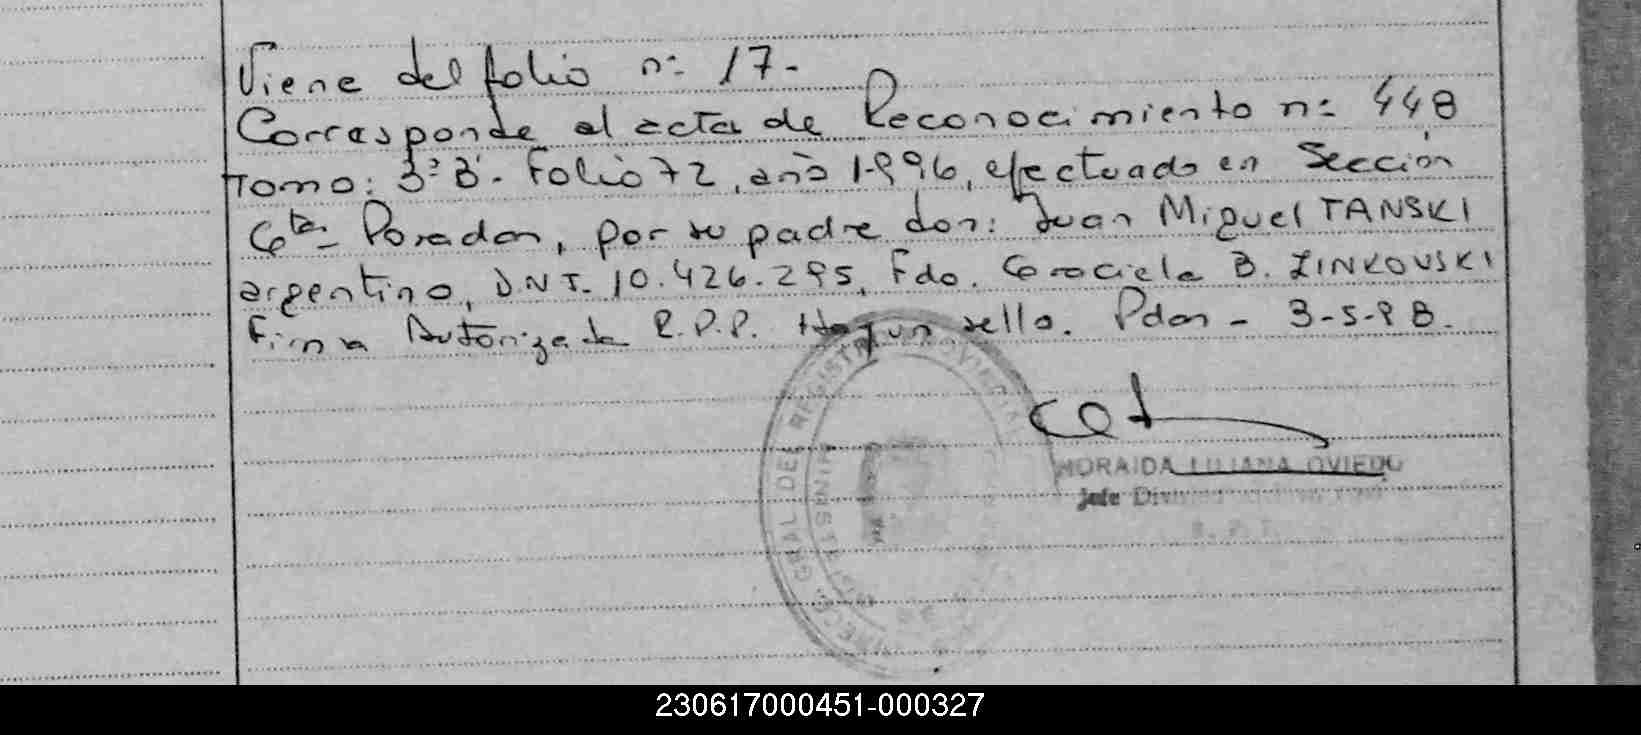 Viene del folio nº 17.-
Corresponde al acta de Reconocimiento nº 448
Tomo: 3º B. Folio 72, año 1.996, efectuado en Sección
6ta- Posadas, por su padre don: Juan Miguel TANSKI
argentino, D.N.I. 10.426.295, Fdo. Graciela B. ZINKOVSKI
Firma Autorizada R.P.P. Hay un sello. Pdas - 3-5-98.
DIRECC GRAL DEL REGISTRO
PROVINCIA
NORAIDA LILIANA OVIEDO
Jefe
230617000451-000327